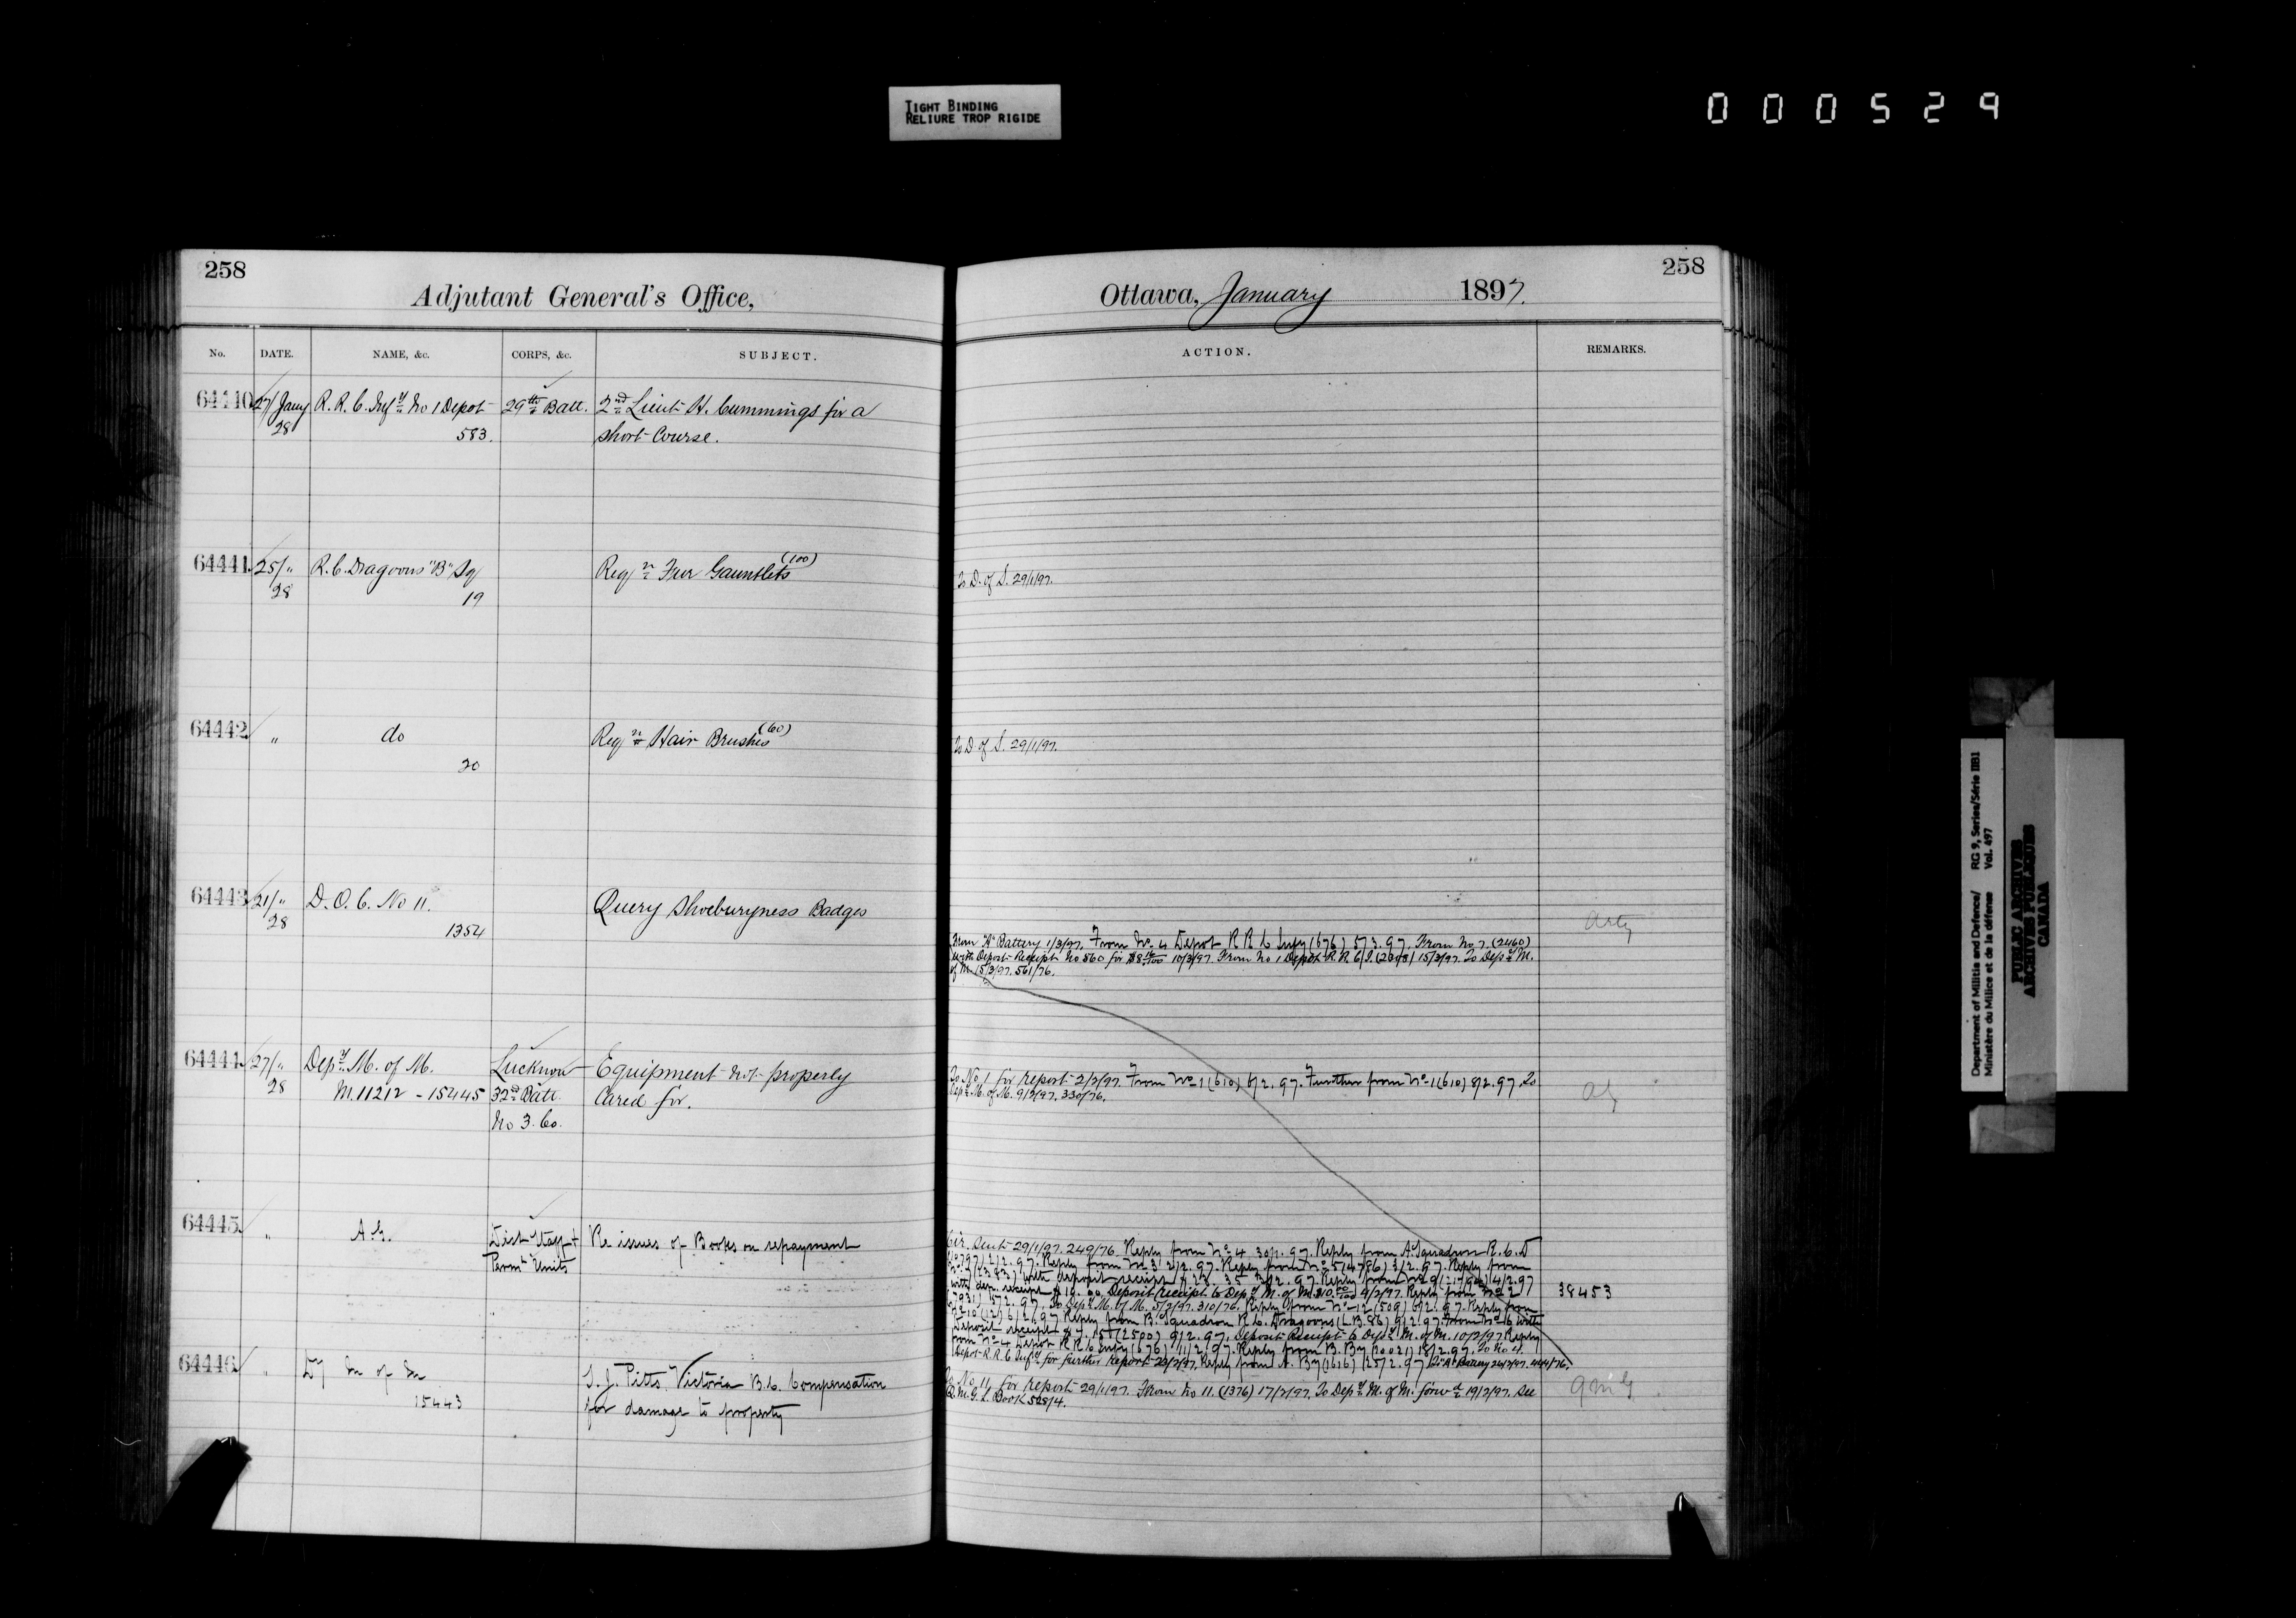 TIGHT BINDING
RELIURE TROP RIGIDE
000529
258
Adjutant General's Office,
No. DATE. NAME, &c. CORPS, &c. SUBJECT.
64440 27/Jany R. R. C. Infy No 1 Depot 29th Batt. 2nd Lieut H. Cummings for a
28 583. Short Course.
64441 25/" R. C. Dragoons "B" Sq Reqn Fur Gauntlets (100)
28 19
64442 " do Reqn Hair Brushes (60)
20
64443 21/" D. O. C. No 11. Query Shoeburyness Badges
28 1354
64444 27/" Depy M. of M. Lucknow Equipment not properly
28 M. 11212 - 15445 32nd Batt. Cared for.
No 3. Co.
64445 " A. G. Dist Staff + Re issues of Books on repayment
Permt Units
64446 " Dy M of M S. J. Pitts, Victoria B.C. Compensation
15443 for damage to property
258
Ottawa, January 1897.
ACTION. REMARKS.
To D. of S. 29/1/97.
To D. of S. 29/1/97.
Arty
From "A" Battery 1/3/97. From No 4 Depot R R C Infy (676) 5/3.97. From No 7. (2460)
with Deposit Receipt No 560 for 10/3/97 From No 1 Depot R. R. C. I. 15/3/97. To Depy M.
of M. 15/3/97. 561/76.
To No. 1 for report 2/2/97. From No 1 (610) 6/2.97. Further from No 1 (610) 8/2.97. To
Depy M. of M. 9/2/97. 330/76.
Cir. sent 29/1/97. 249/76. Reply from No 4 30/1.97. Reply from A. Squadron R. C. D
2/2.97. Reply from No 3 2/2.97. Reply from No 5 (4786) 3/2.97. Reply from
with deposit receipt 3/2.97. Reply from No 9 4/2.97
with dep. receipt Deposit receipt to Depy M. of M. 4/2/97. Reply from No 2
(7931) 5/2.97. To Depy M. of M. 5/2/97. 310/76. Reply from No 12 (509) 6/2.97. Reply from
No 10 6/2.97 Reply from B. Squadron R. C. Dragoons (L.B.86) 9/2.97. From No 6 with
Deposit receipt (2500) 9/2.97. Deposit Receipt to Depy M. of M. 10/2/97 Reply
from No 4 Depot R R C Infy (676) 11/2.97. Reply from B. By 18/2.97. To No 4.
Depot R. R. C. Infy for further report 23/2/97. Reply from A. By (1616) 25/2.97 To "A" Battery 26/2/97.
38453
To No 11. for report 29/1/97. From No 11. (1376) 17/2/97. To Depy M. of M. forwd 19/2/97. See
Q.M.G.'s. Book 528/4.
QMG
Department of Militia and Defence/ RG 9, Series/Série IIB1
Ministère du Milice et de la défense Vol. 497
PUBLIC ARCHIVES
ARCHIVES PUBLIQUES
CANADA